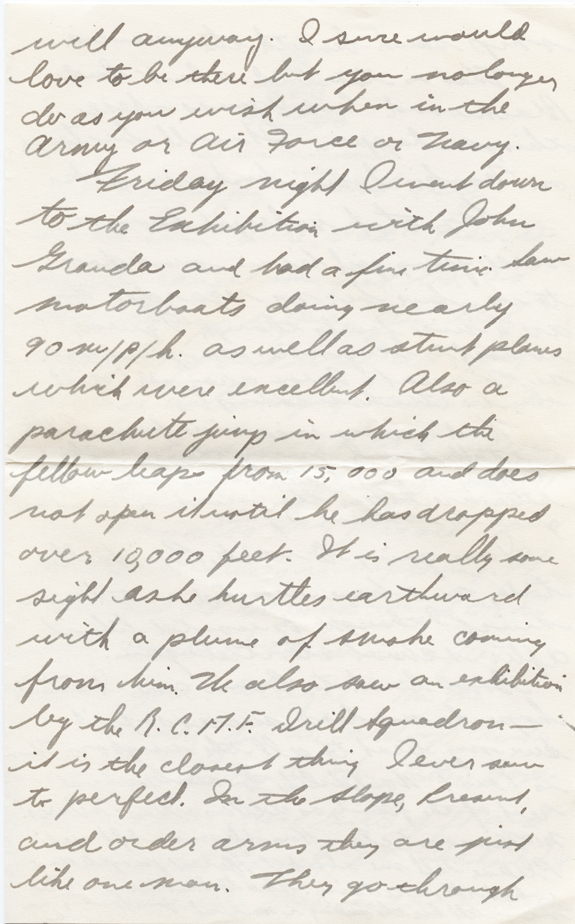 will anyway. I sure would
love to be there but you no longer
do as you wish when in the
Army or Air Force or Navy.
Friday night I went down
to the Exhibition with John
Granda and had a fine time. Saw
motorboats doing nearly
90 m/p/h. as well as stunt planes
which were excellent. Also a
parachute jump in which the
fellow leaps from 15,000 and does
not open it until he has dropped
over 10,000 feet. It is really some
sight as he hurtles earthward
with a plume of smoke coming
from him. We also saw an exhibition
by the R.C.A.F. Drill Squadron—
it is the closest thing I ever saw
to perfect. In the slope, present,
and order arms they are just
like one man. They go through